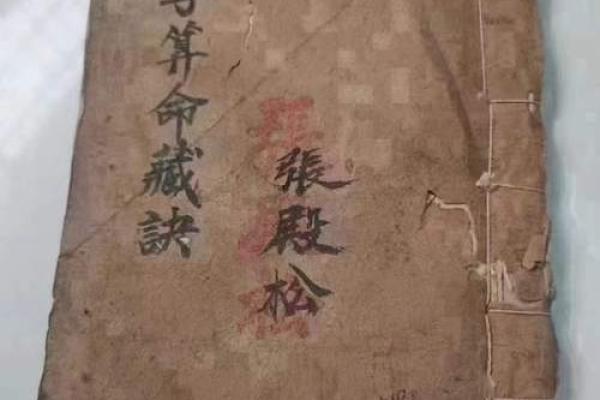 張殿松
算命藏訣